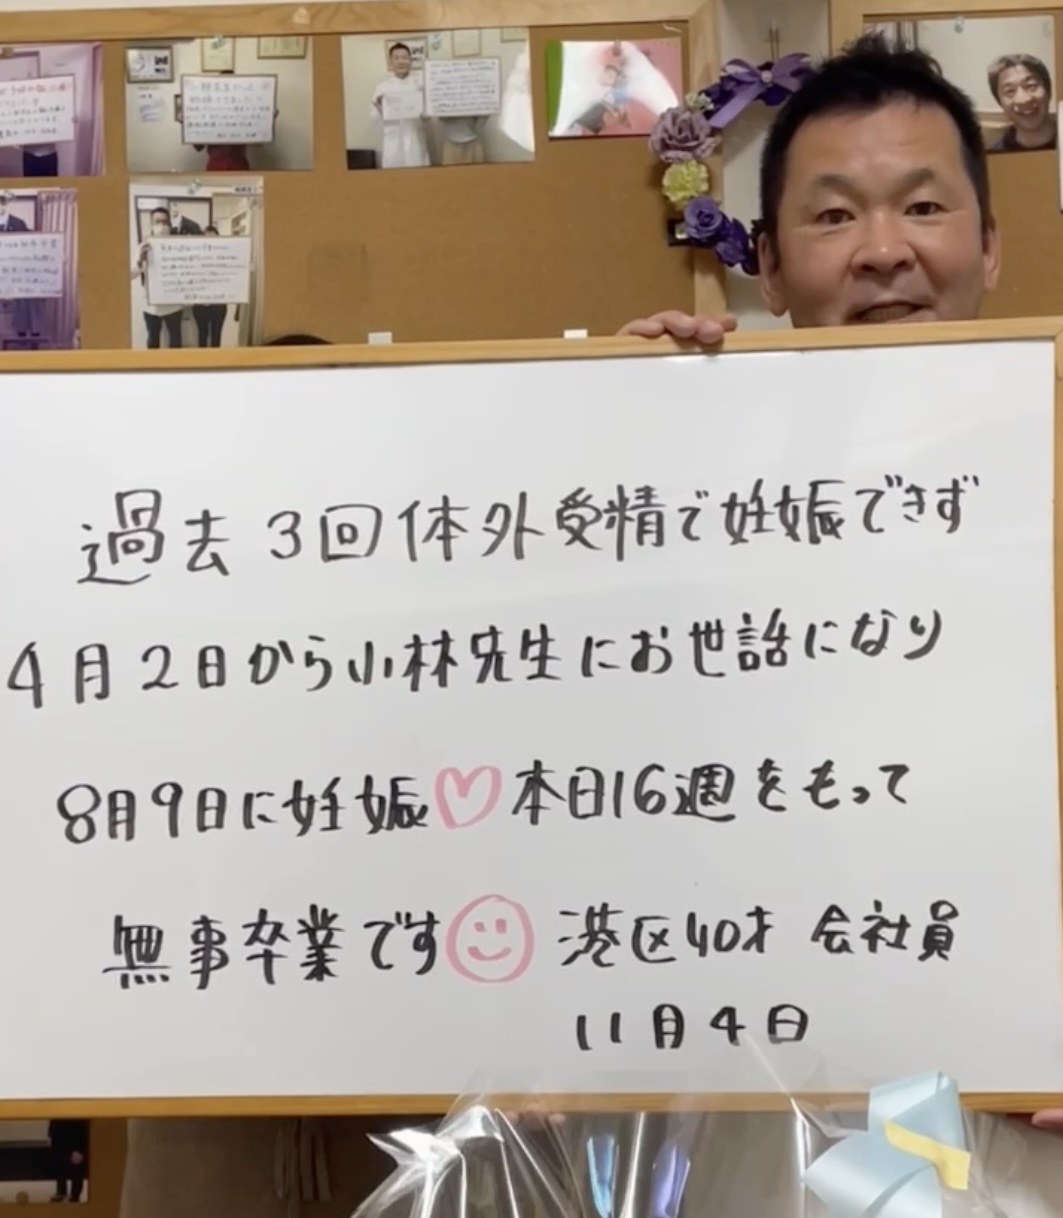 過去3回体外受精で妊娠できず
4月2日から小林先生にお世話になり
8月9日に妊娠♡本日16週をもって
無事卒業です☺ 港区40才 会社員
11月4日